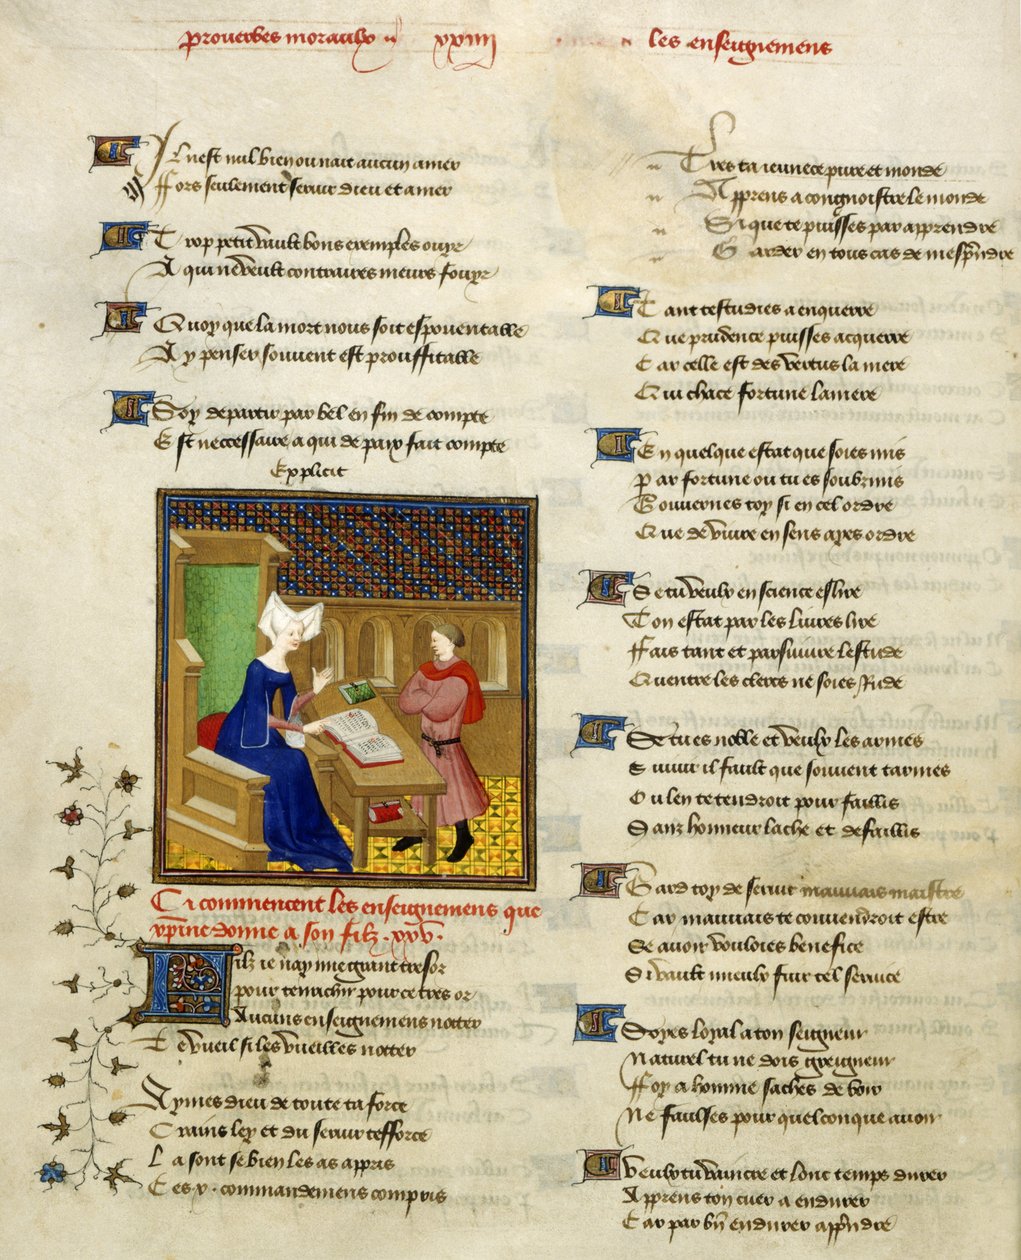 prouerbes moraulx xxiiij
les enseignemens
Il nest nul bien ou nait aucun amer
ffors seulement seruir dieu et amer
Trop petit vault bons exemples ouyr
A qui ne veult contraires meurs fouyr
Quoy que la mort nous soit espouentable
A y penser souuent est prouffitable
Soy departir par bel en fin de compte
Est neccessaire a qui de paix fait compte
Explicit
Ci commencent les enseignemens que
xpine donne a son filz . xxv.
Filz ie nay mie grant tresor
pour tenrichir pour ce tres or
Aucuns enseignemens notter
Te vueil si les vueilles notter
Aymes dieu de toute ta force
Crains ley et du seruir tefforce
La sont se bien les as appris
Ces .x. commandemens compris
Tres ta ieunece pure et monde
Apprens a congnoistre le monde
Si que te puisses par apprendre
Garder en tous cas de mesprendre
Tant testudies a enquerre
Que prudence puisses acquerre
Car celle est des vertus la mere
Qui chace fortune lamere
En quelque estat que soies mis
Par fortune ou tu es soubzmis
Gouuernes toy si en cel ordre
Que de viure en sens ayes ordre
Se tu veulx en science eslire
Ton estat par les liures lire
ffais tant et par suiure lestude
Quentre les clercs ne soies Rude
Se tu es noble et veulx les armes
Suiuir il fault que souuent tarmes
Ou len te tendroit pour faillis
Sanz honneur lache et deffaillis
Gard toy de seruir mauuais maistre
Car mauuais te conuendroit estre
Se auoir vouloies benefice
Si vault mieulx fuir tel seruice
Soyes loyal a ton seigneur
Naturel tu ne dois greigneur
ffoy a homme saches de voir
Ne faulses pour quelconque auoir
Veulx tu vaincre et lonc temps durer
Apprens ton cuer a endurer
Car par bien endurer apprendre